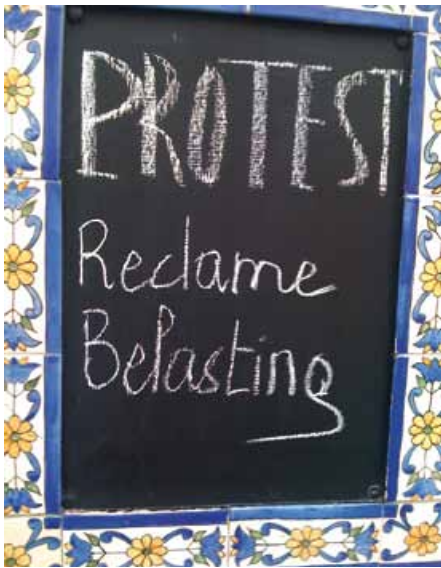 PROTEST
Reclame
Belasting